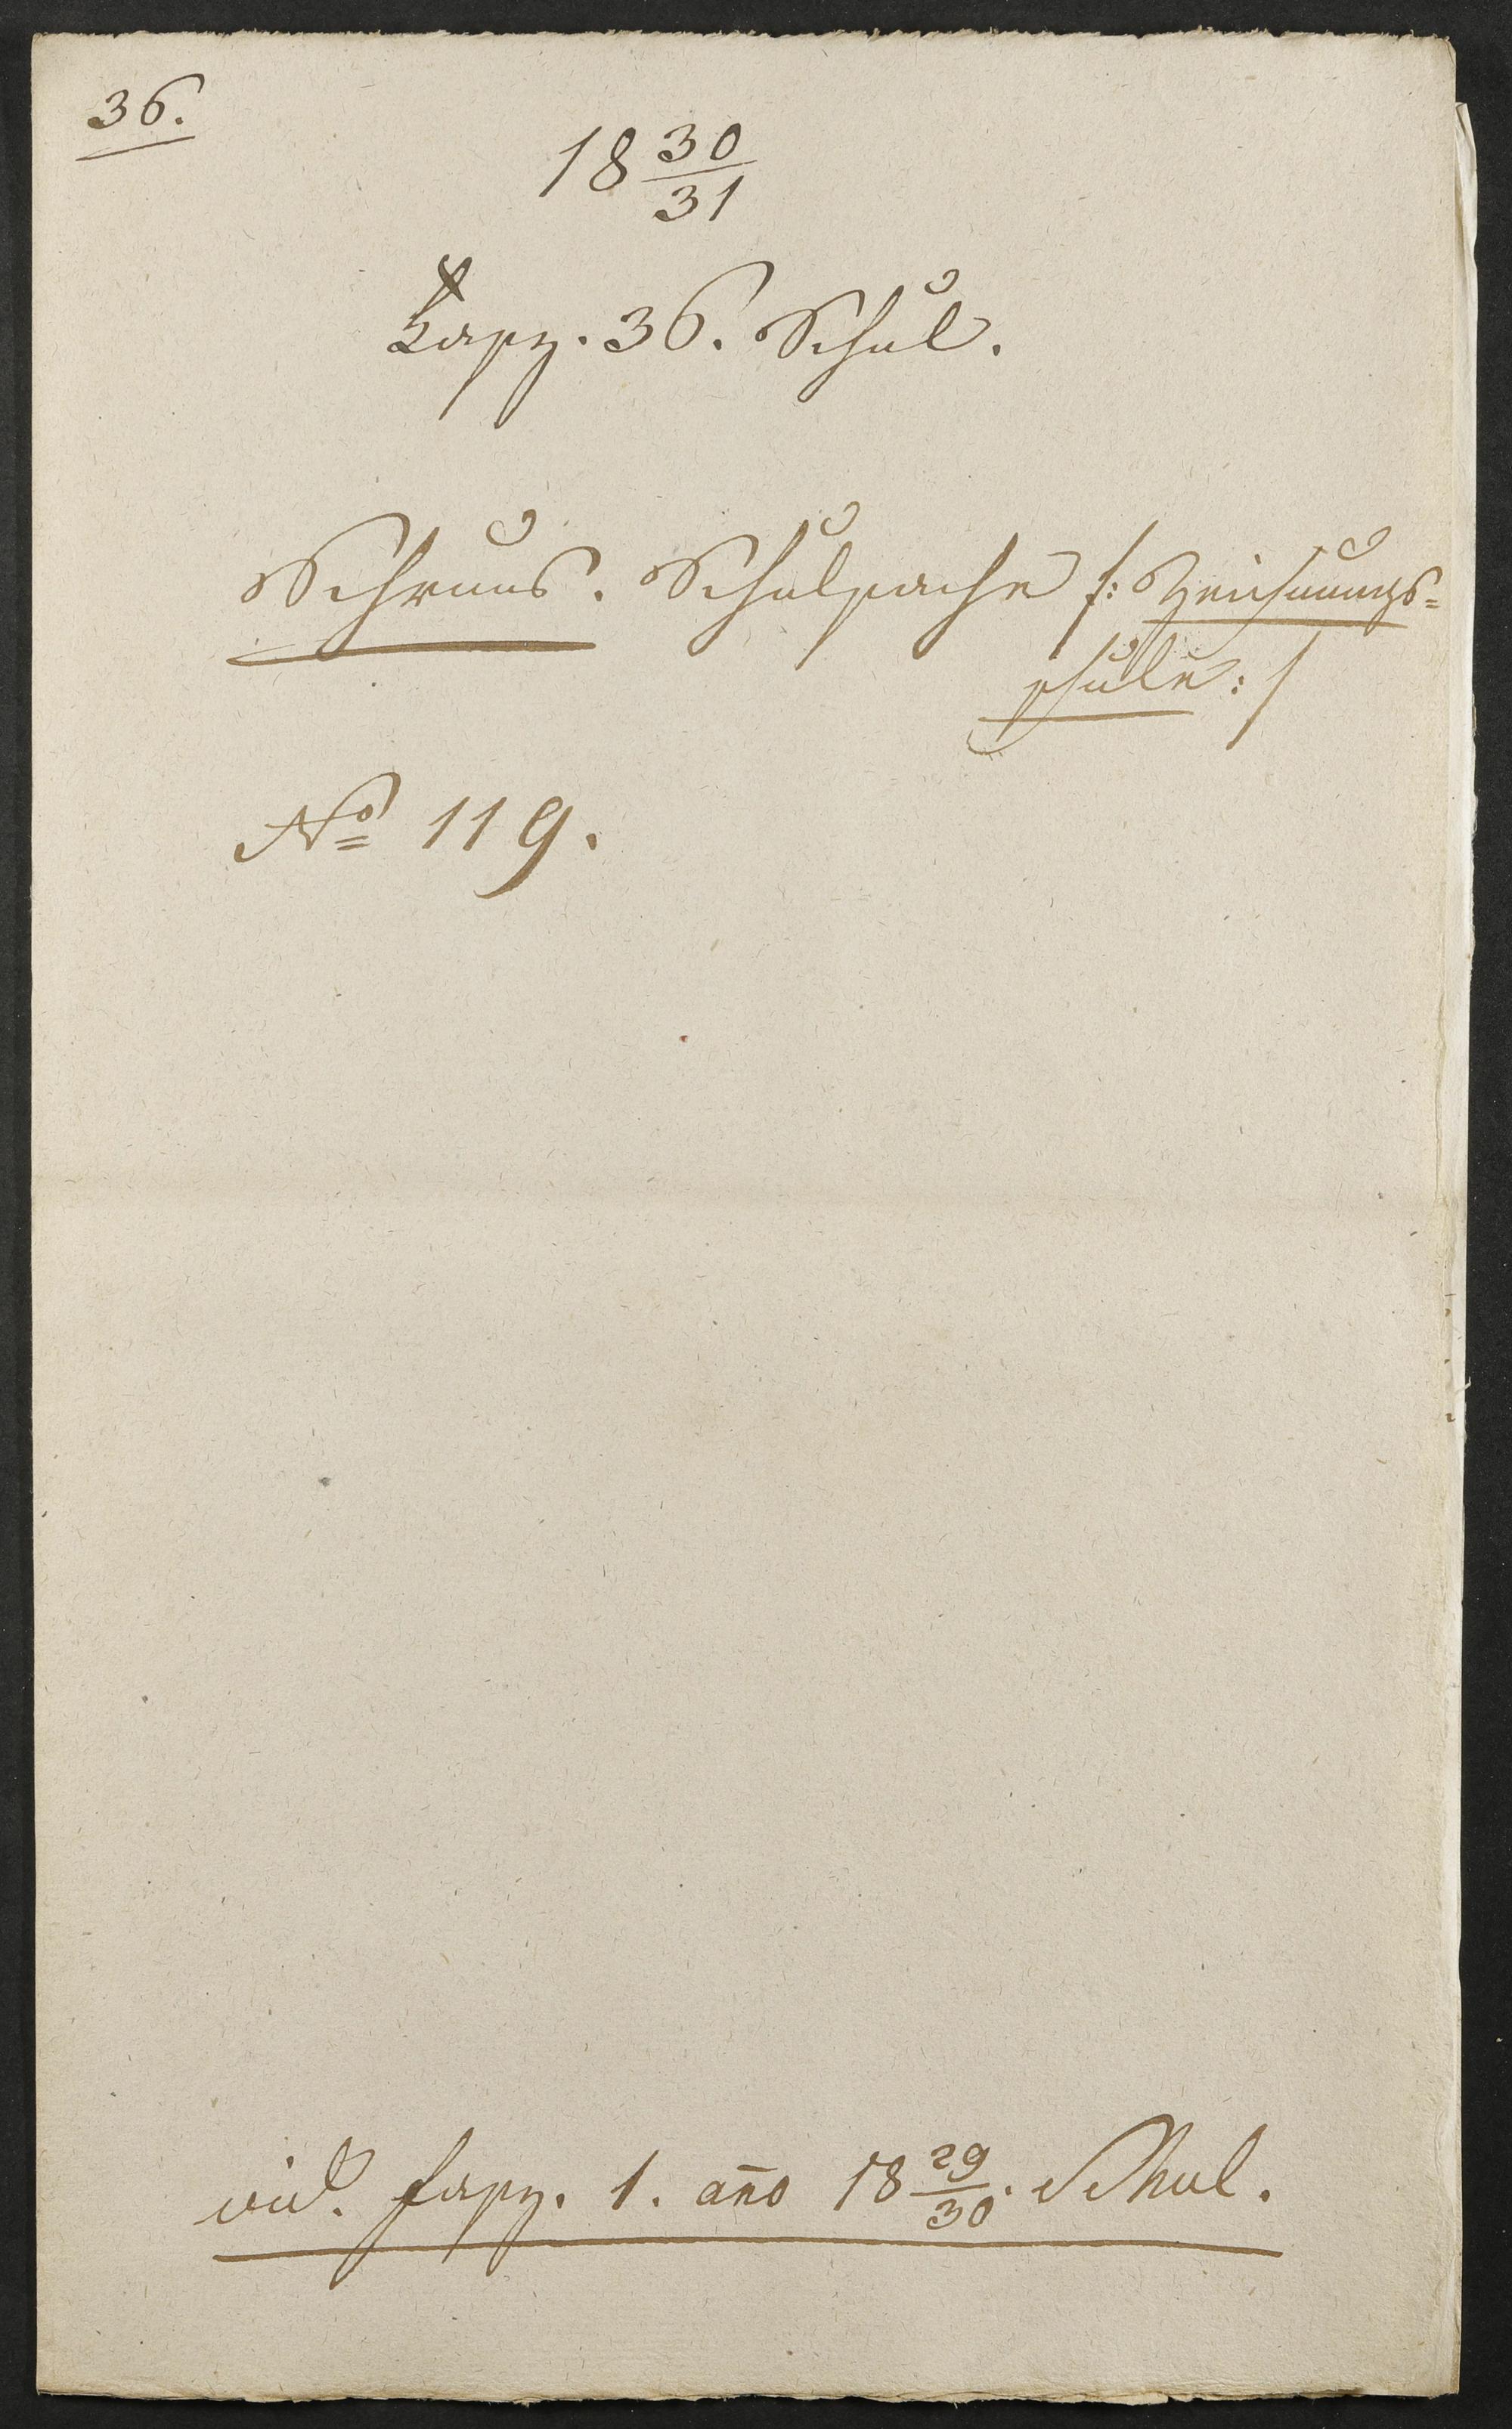 36.
18 30/31
Fasz. 36. Schul.
Schruns. Schulsache /: Zeichnungs=
schule :/
No 119.
vid. Fasz. 1. año 18 29/30. Schul.